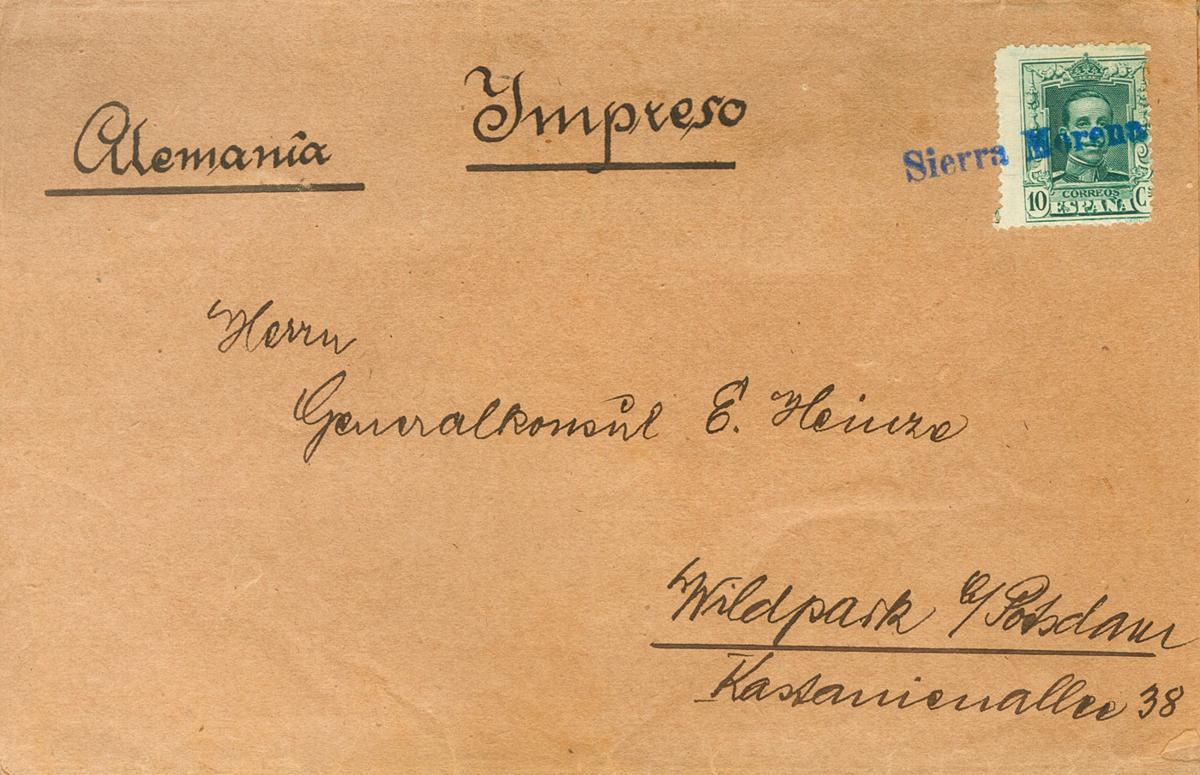 Alemania
Impreso
Sierra Morena
CORREOS
10 ESPAÑA C
Herrn
Generalkonsul E. Heinze
Wildpark b/Potsdam
Kastanienallee 38